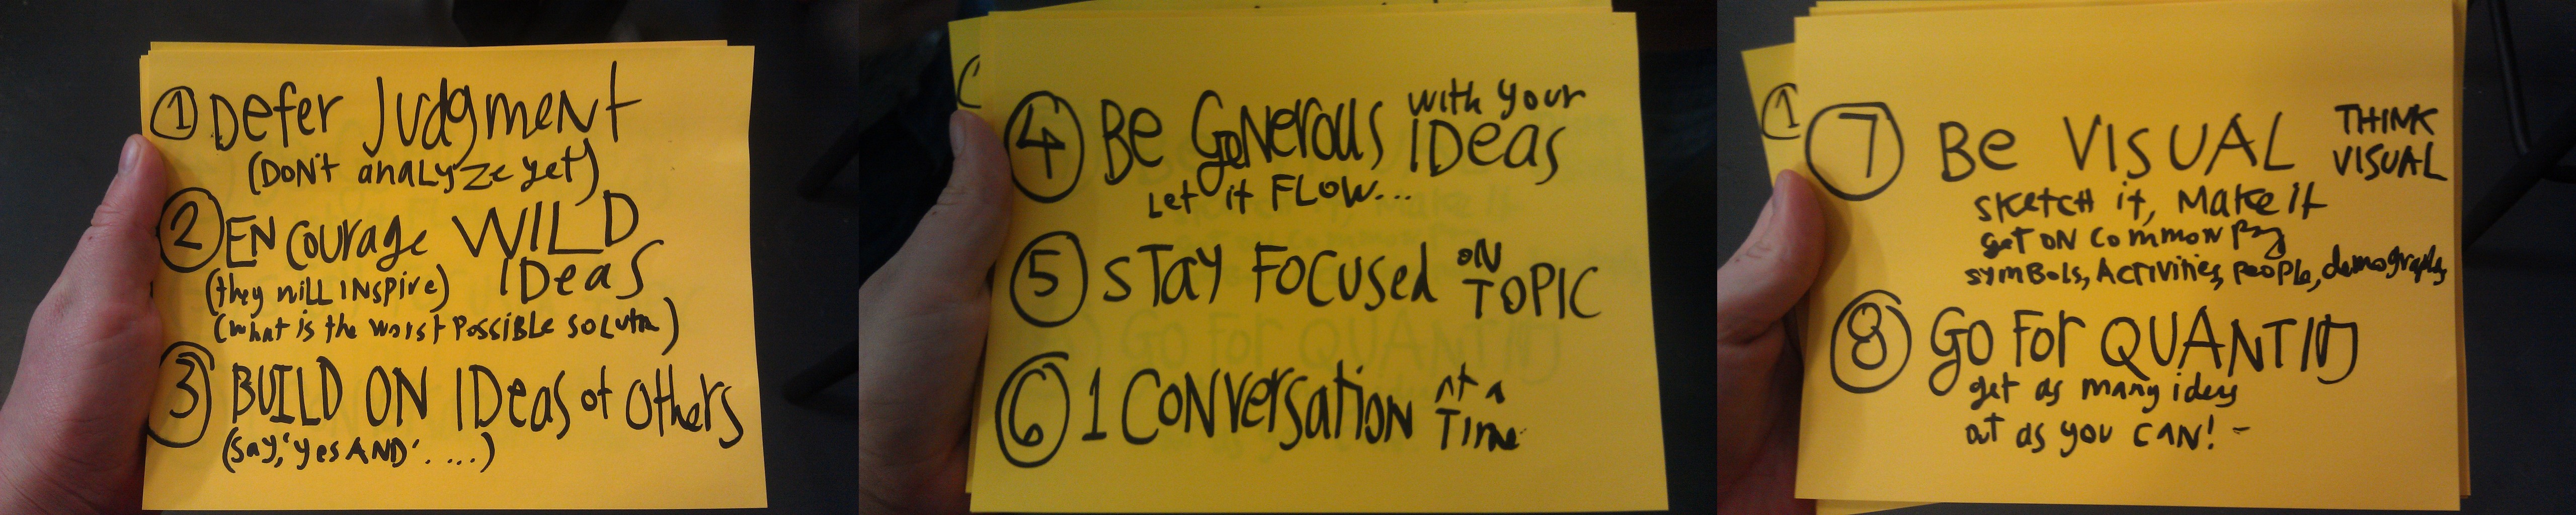 ① Defer Judgment
(DON't analyze yet)
② ENcourage WILD
IDeas
(they will INspire)
(what is the worst possible solutn)
③ BUILD ON IDeas of others
(say, 'yes AND' . ...)
④ Be GeNerous with your
IDeas
Let it FLOW...
⑤ STay FOCUsed ON
TOPIC
⑥ 1 CONVersation At a
Time
①
⑦ Be VISUAL THINK
VISUAL
sketcH it, Make it
get ON commON pg
symBoLs, Activities, people, demographs
⑧ GO For QUANTITY
get as many ideas
out as you CAN! -